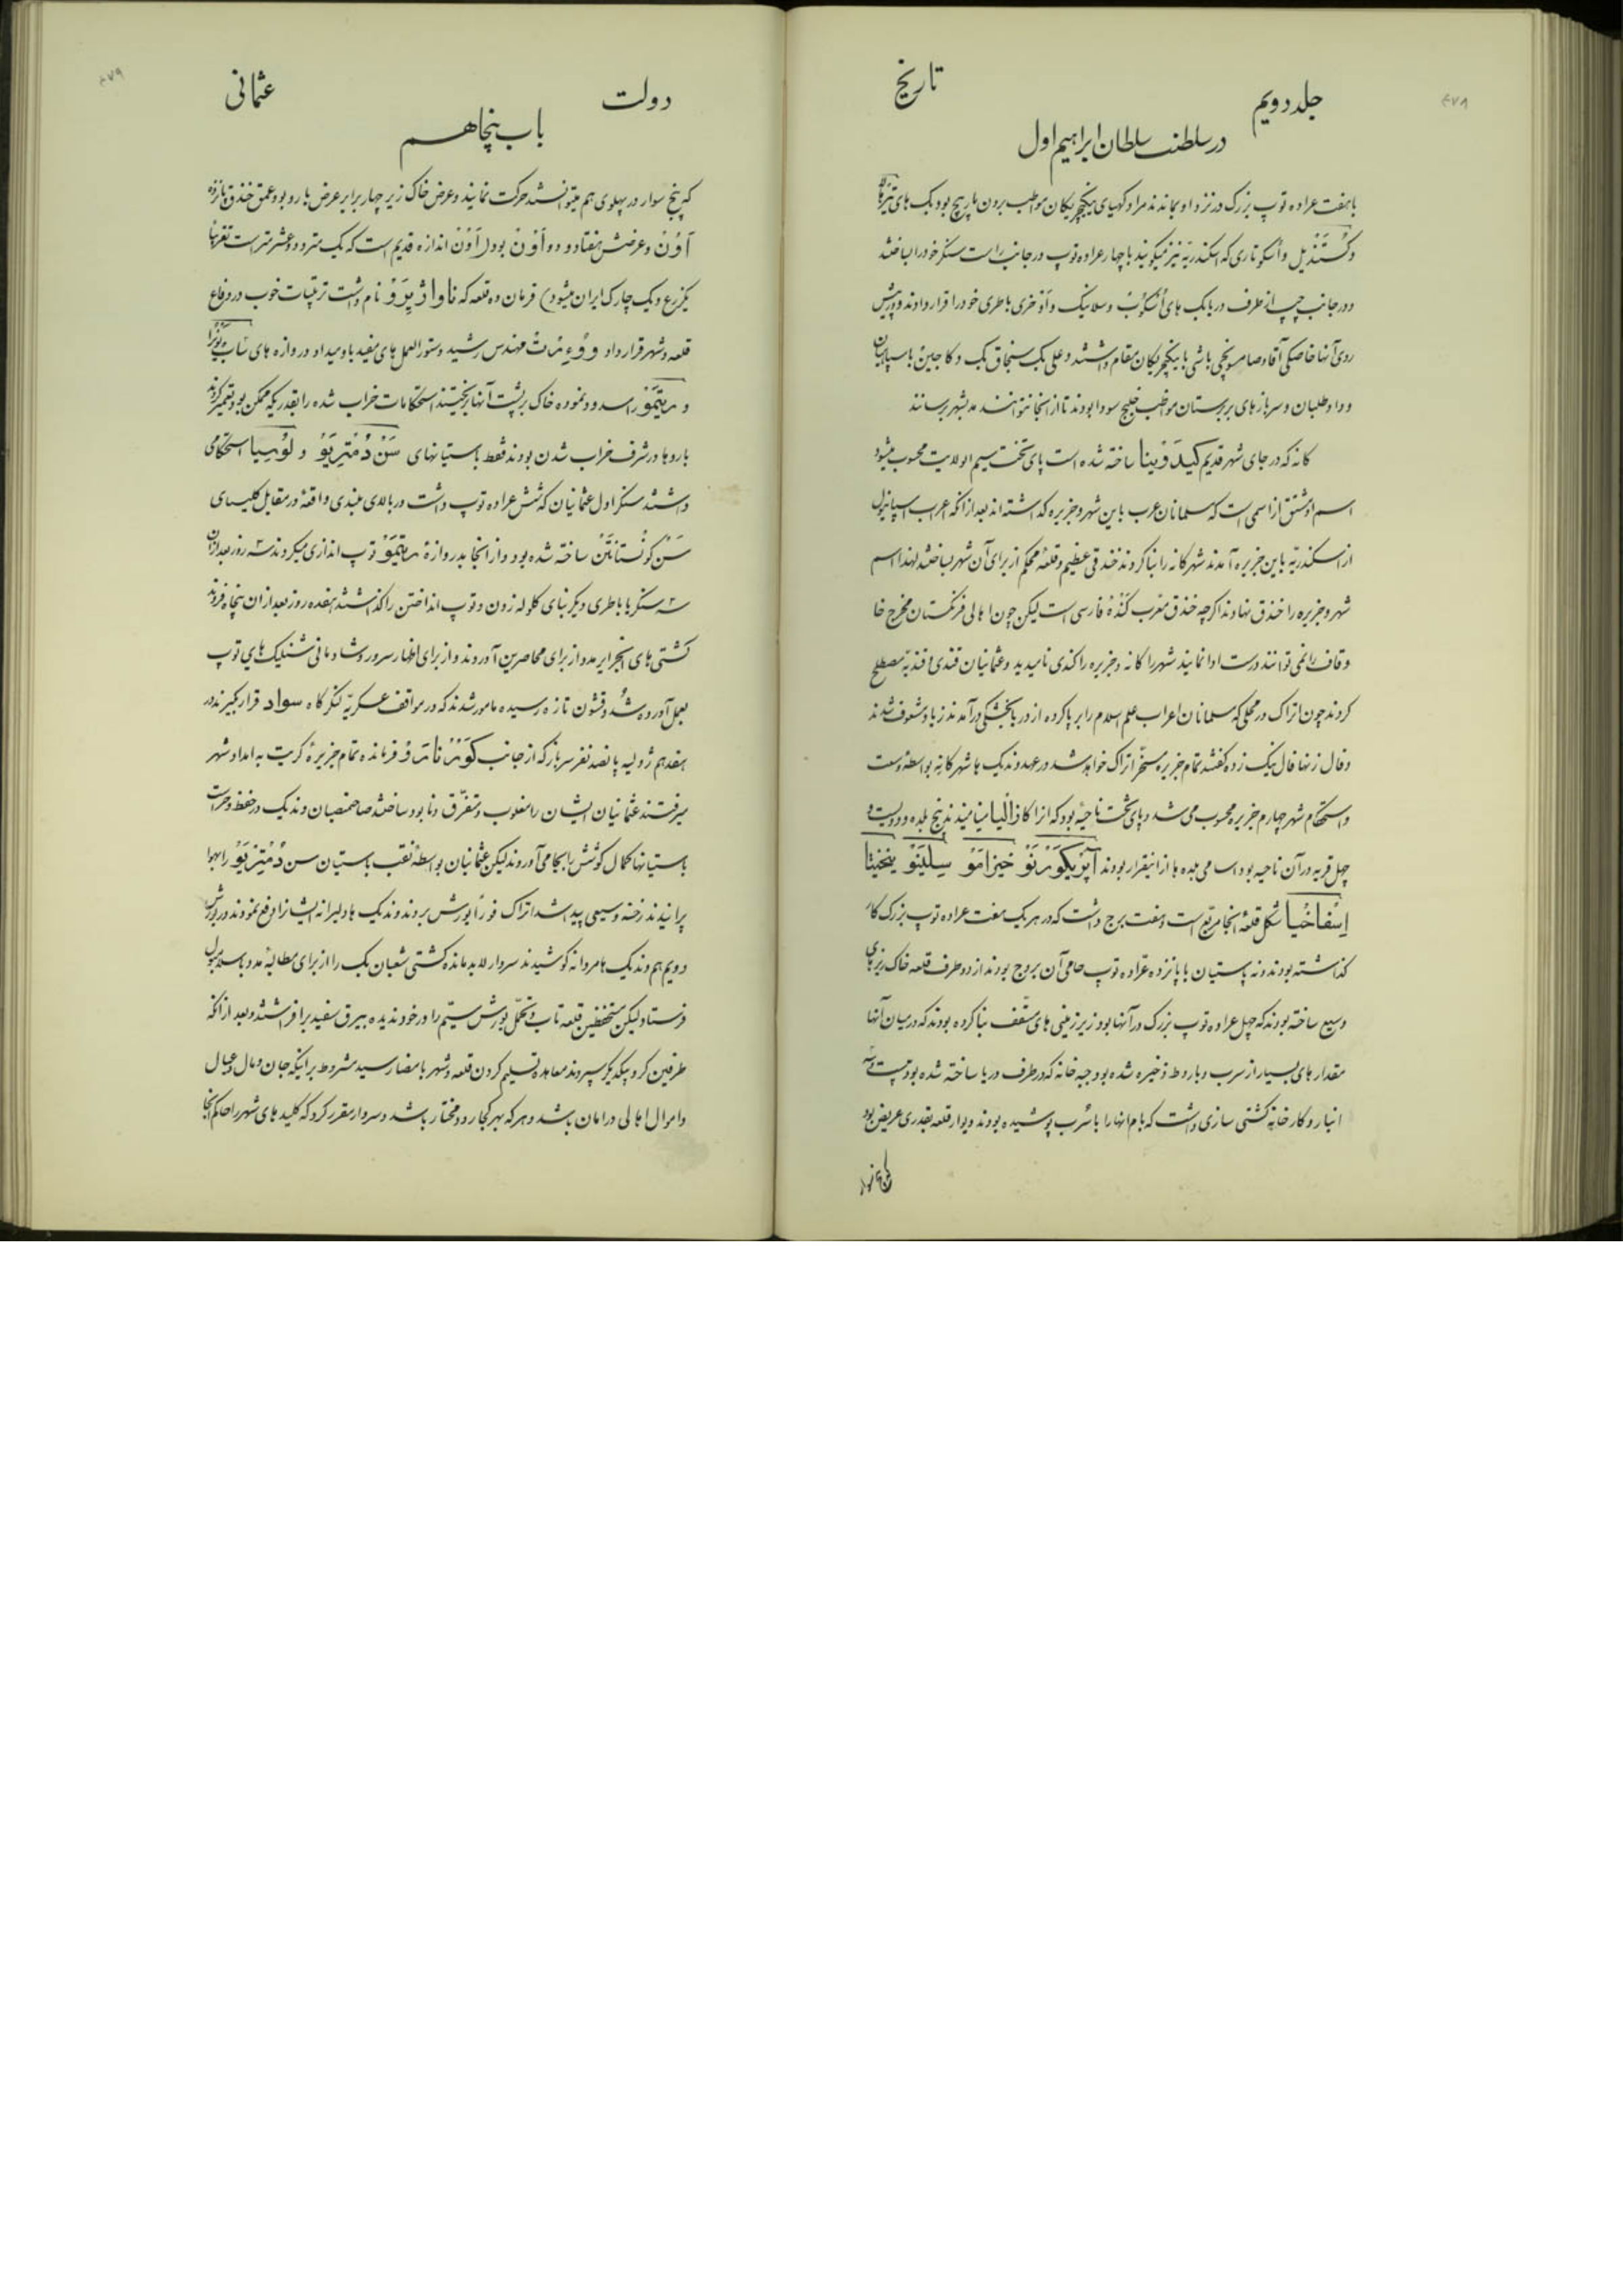 ۴۷۸
جلد دویم
تاریخ
در سلطنت سلطان ابراهیم اول
با هفت عراده توپ بزرک در نزد او بماندند مراد کهیای ینکیچریکان مواظب بردن مارپیچ بود و بک های تیرهاله
و کستندیل و اسکوتاری که اسکندریه نیز میکویند با چهار عراده توپ در جانب راست سنکر خود را ساختند
و در جانب چپ از طرف دریا بک های اسکوب و سلانیک و آذخری باطری خود را قرار دادند و پیش
روی آنها خاصکی آقا و صامسونچی باشی با ینکیچریکان مقام داشتند و علی بک سنجاق بک دکاجین با سپاهیان
و داوطلبان و سربازهای بربرستان مواظب خلیج سودا بودند تا از آنجا نتوانند مدد بشهر برسانند
کانه که در جای شهر قدیم کیدونیا ساخته شده است پای تخت سیم الولایت محسوب میشود
اسم او مشتق از اسمی است که مسلمانان عرب باین شهر و جزیره کذاشته اند بعد از آنکه اعراب اسپانیول
از اسکندریه باین جزیره آمدند شهر کانه را بنا کردند خندقی عظیم و قلعه محکم از برای آن شهر ساختند لهذا اسم
شهر و جزیره را خندق نهادند اکرچه خندق معرب کنده فارسی است لیکن چون اهالی فرنکستان مخرج خا
و قاف را نمی توانند درست ادا نمایند شهر را کانه و جزیره را کندی نامیدند و عثمانیان قندی و قندیه مصطلح
کردند چون اتراک در محلی که مسلمانان اعراب علم اسلام را برپا کرده از دریا بخشکی درآمدند زیاد مشعوف شدند
و فال زنها فال نیک زده کفتند تمام جزیره مسخر اتراک خواهد شد در عهد وندیک ها شهر کانه بواسطه وسعت
و استحکام شهر چهارم جزیره محسوب می شد و پای تخت ناحیه بود که آنرا کاذالیا مینامیدند پنج بلده و دویست و
چهل قریه در آن ناحیه بود اسامی بلده ها از اینقرار بودند آپریکورنو خیزامو سیلینو
اسفاخیا شکل قلعه آنجا مربع است و هفت برج داشت که در هر یک هفت عراده توپ بزرک کار
کذاشته بودند و نه باستیان با پانزده عراده توپ حامی آن بروج بودند از دو طرف قلعه خاک ریزهای
وسیع ساخته بودند که چهل عراده توپ بزرک در آنها بود زیرزمینی های مسقف بنا کرده بودند که در میان آنها
مقدارهای بسیار از سرب و باروط ذخیره شده بود جبه خانه که در طرف دریا ساخته شده بود بیست و سه
انبار و کارخانه کشتی سازی داشت که بام آنها را با سرب پوشیده بودند دیوار قلعه بقدری عریض بود
۴۷۹
دولت
عثمانی
باب پنجاهم
که پنج سوار در پهلوی هم میتوانستند حرکت نمایند و عرض خاک زیر چهار برابر عرض بارو بود عمق خندق پانزده
آون و عرضش هفتاد و دو آون بود (آون اندازه قدیم است که یک متر و دو عشر متر است تقریبا
یکزرع و یک چارک ایران میشود) فرمان ده قلعه که ناواژیرو نام داشت ترتیبات خوب در دفاع
قلعه و شهر قرار داد مهندس رشید دستورالعمل های مفید باو میداد دروازه های
و ریتیمو را مسدود نموده خاک بر پشت آنها ریختند استحکامات خراب شده را بقدریکه ممکن بود تعمیر کردند
باروها در شرف خراب شدن بودند فقط باستیانهای سن دمتریو و لوسیا استحکامی
داشتند سنکر اول عثمانیان که شش عراده توپ داشت در بالای بلندی واقعه در مقابل کلیسای
سن کونستانتن ساخته شده بود و از آنجا بدروازه ریتیمو توپ اندازی میکردند سه روز بعد از آن
سه سنکر با باطری دیکر بنای کلوله زدن و توپ انداختن را کذاشتند هفده روز بعد از آن پنجاه فروند
کشتی های الجزایر مدد از برای محاصرین آوردند و از برای اظهار سرور و شادمانی شنلیک های توپ
بعمل آورده شد و قشون تازه رسیده مامور شدند که در مواقف عسکریه لنکرگاه سواد قرار بکیرند در
هفدهم ژولیه پانصد نفر سرباز که از جانب کورنارو فرمانده تمام جزیره کریت به امداد شهر
میرفتند عثمانیان ایشان را مغلوب و متفرق و نابود ساختند صاحبمنصبان وندیک در حفظ و حراست
باستیانها کمال کوشش را بجا می آوردند لیکن عثمانیان بواسطه نقب باستیان سن دمتریو را بهوا
پرانیدند رخنه وسیعی پیدا شد اتراک فوراً یورش بردند وندیک ها دلیرانه ایشانرا دفع نمودند در یورش
دویم هم وندیک ها مردانه کوشیدند سردار لابد مانده کشتی شعبان بک را از برای مطالبه مدد باسلامبول
فرستاد لیکن مستحفظین قلعه تاب و تحمل یورش سیم را در خود ندیده بیرق سفید برافراشتند و بعد از آنکه
طرفین کرو بیکدیکر سپردند معاهده تسلیم کردن قلعه و شهر بامضا رسید مشروط بر اینکه جان و مال و عیال
و اموال اهالی در امان باشد و هر که بهر کجا رود مختار باشد و سردار مقرر کرد که کلیدهای شهر را حاکم آنجا